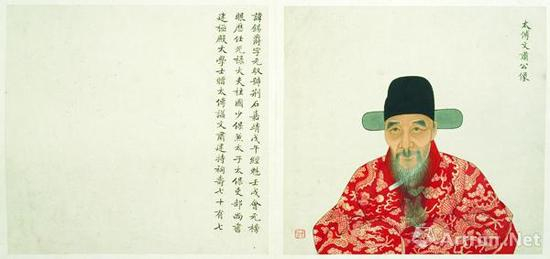 太傅文肅公像
諱錫爵字元馭號荆石嘉靖戊午經魁壬戌會元榜
眼歷任光祿大夫柱國少保兼太子太保吏部尚書
建極殿大學士贈太傅諡文肅建特祠壽七十有七
Artron.Net